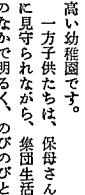 高い幼稚園です。
一方子供たちは、保母さん
に見守られながら、集団生活
のなかで明るく、のびのびと